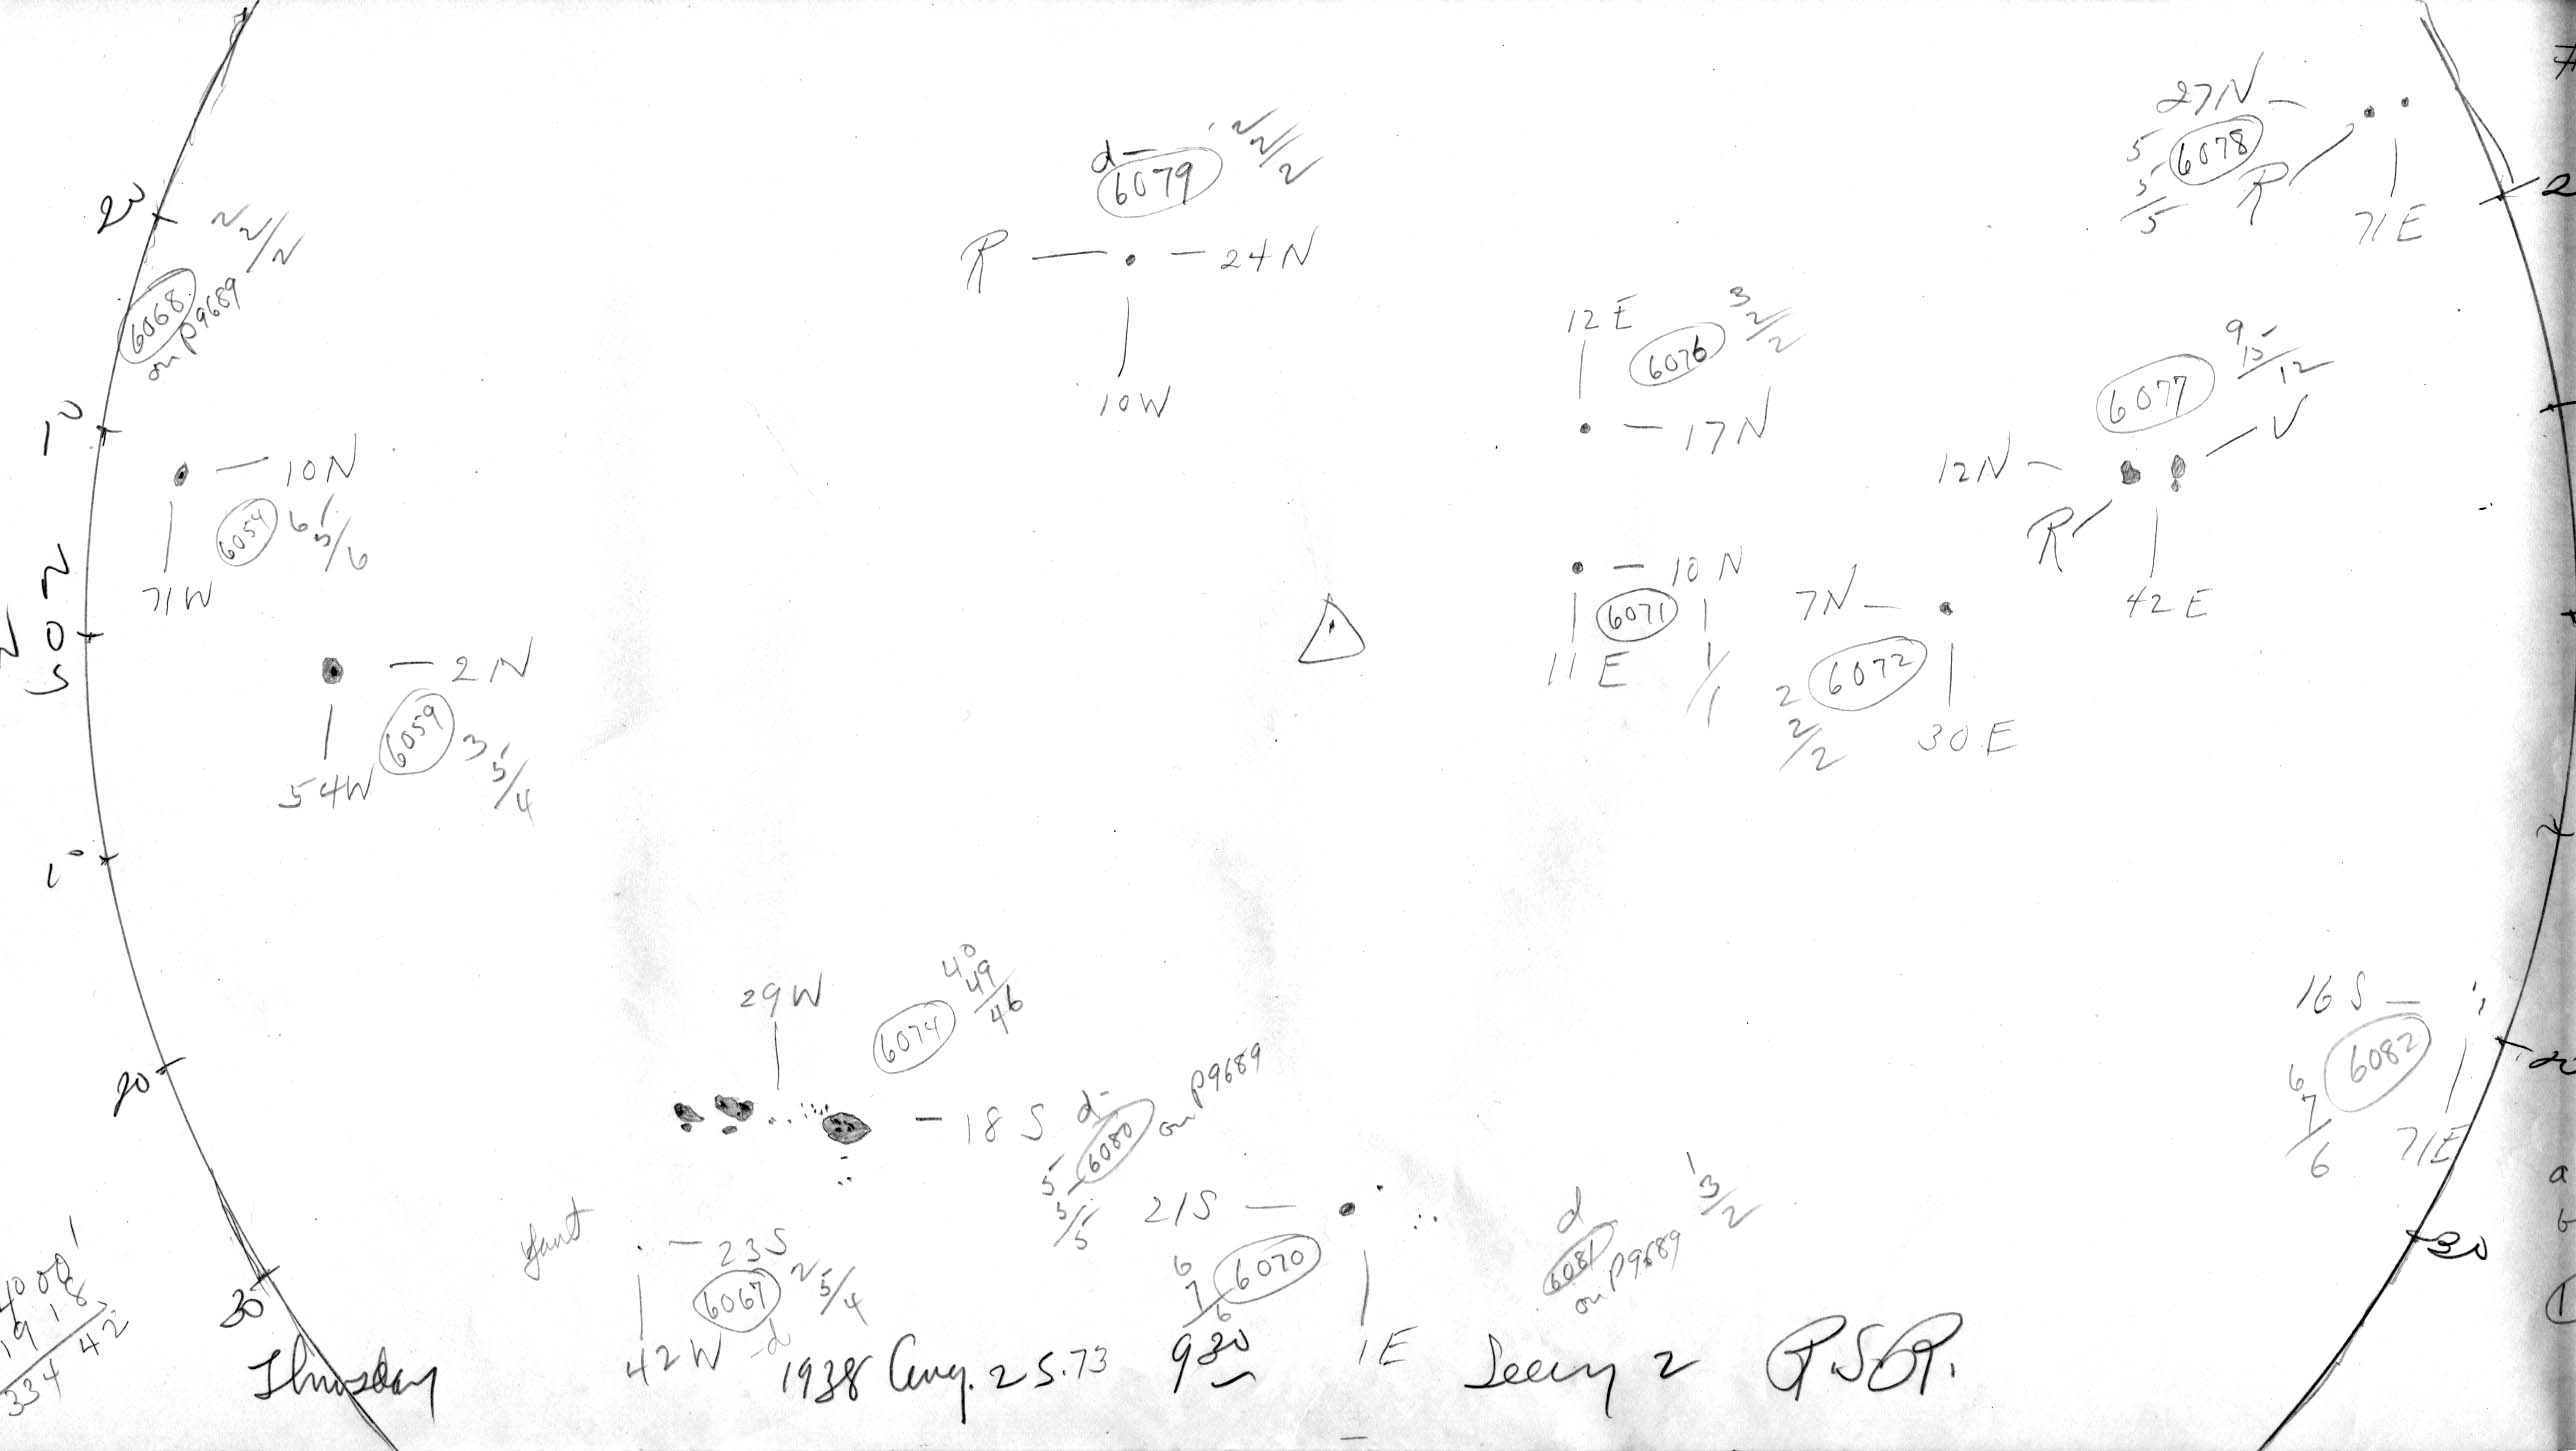 27N
5
6078
5/5
R
71E
d
2 2/2
6079
R
24N
10W
20
2 2/2
6068
on P9689
12E
6076
3 2/2
17N
9 15/12
6077
V
12N
R
42E
10
10N
6054
6 5/6
71W
10N
6071
11E
1
1/1
7N
6072
2 2/2
30E
N
0
S
2N
6059
3 5/4
54W
10
29W
6074
40 49/46
18S
16S
6082
6 7/6
71E
20
20
d
6080
on P9689
5 5/5
21S
6070
6 7/6
1E
d
6081
on P9689
1 3/2
faint
23S
6067
2 5/4
d
42W
30
30
4000
1918
334 42
Thursday
1938 Aug. 25.73
9 30
Seeing 2